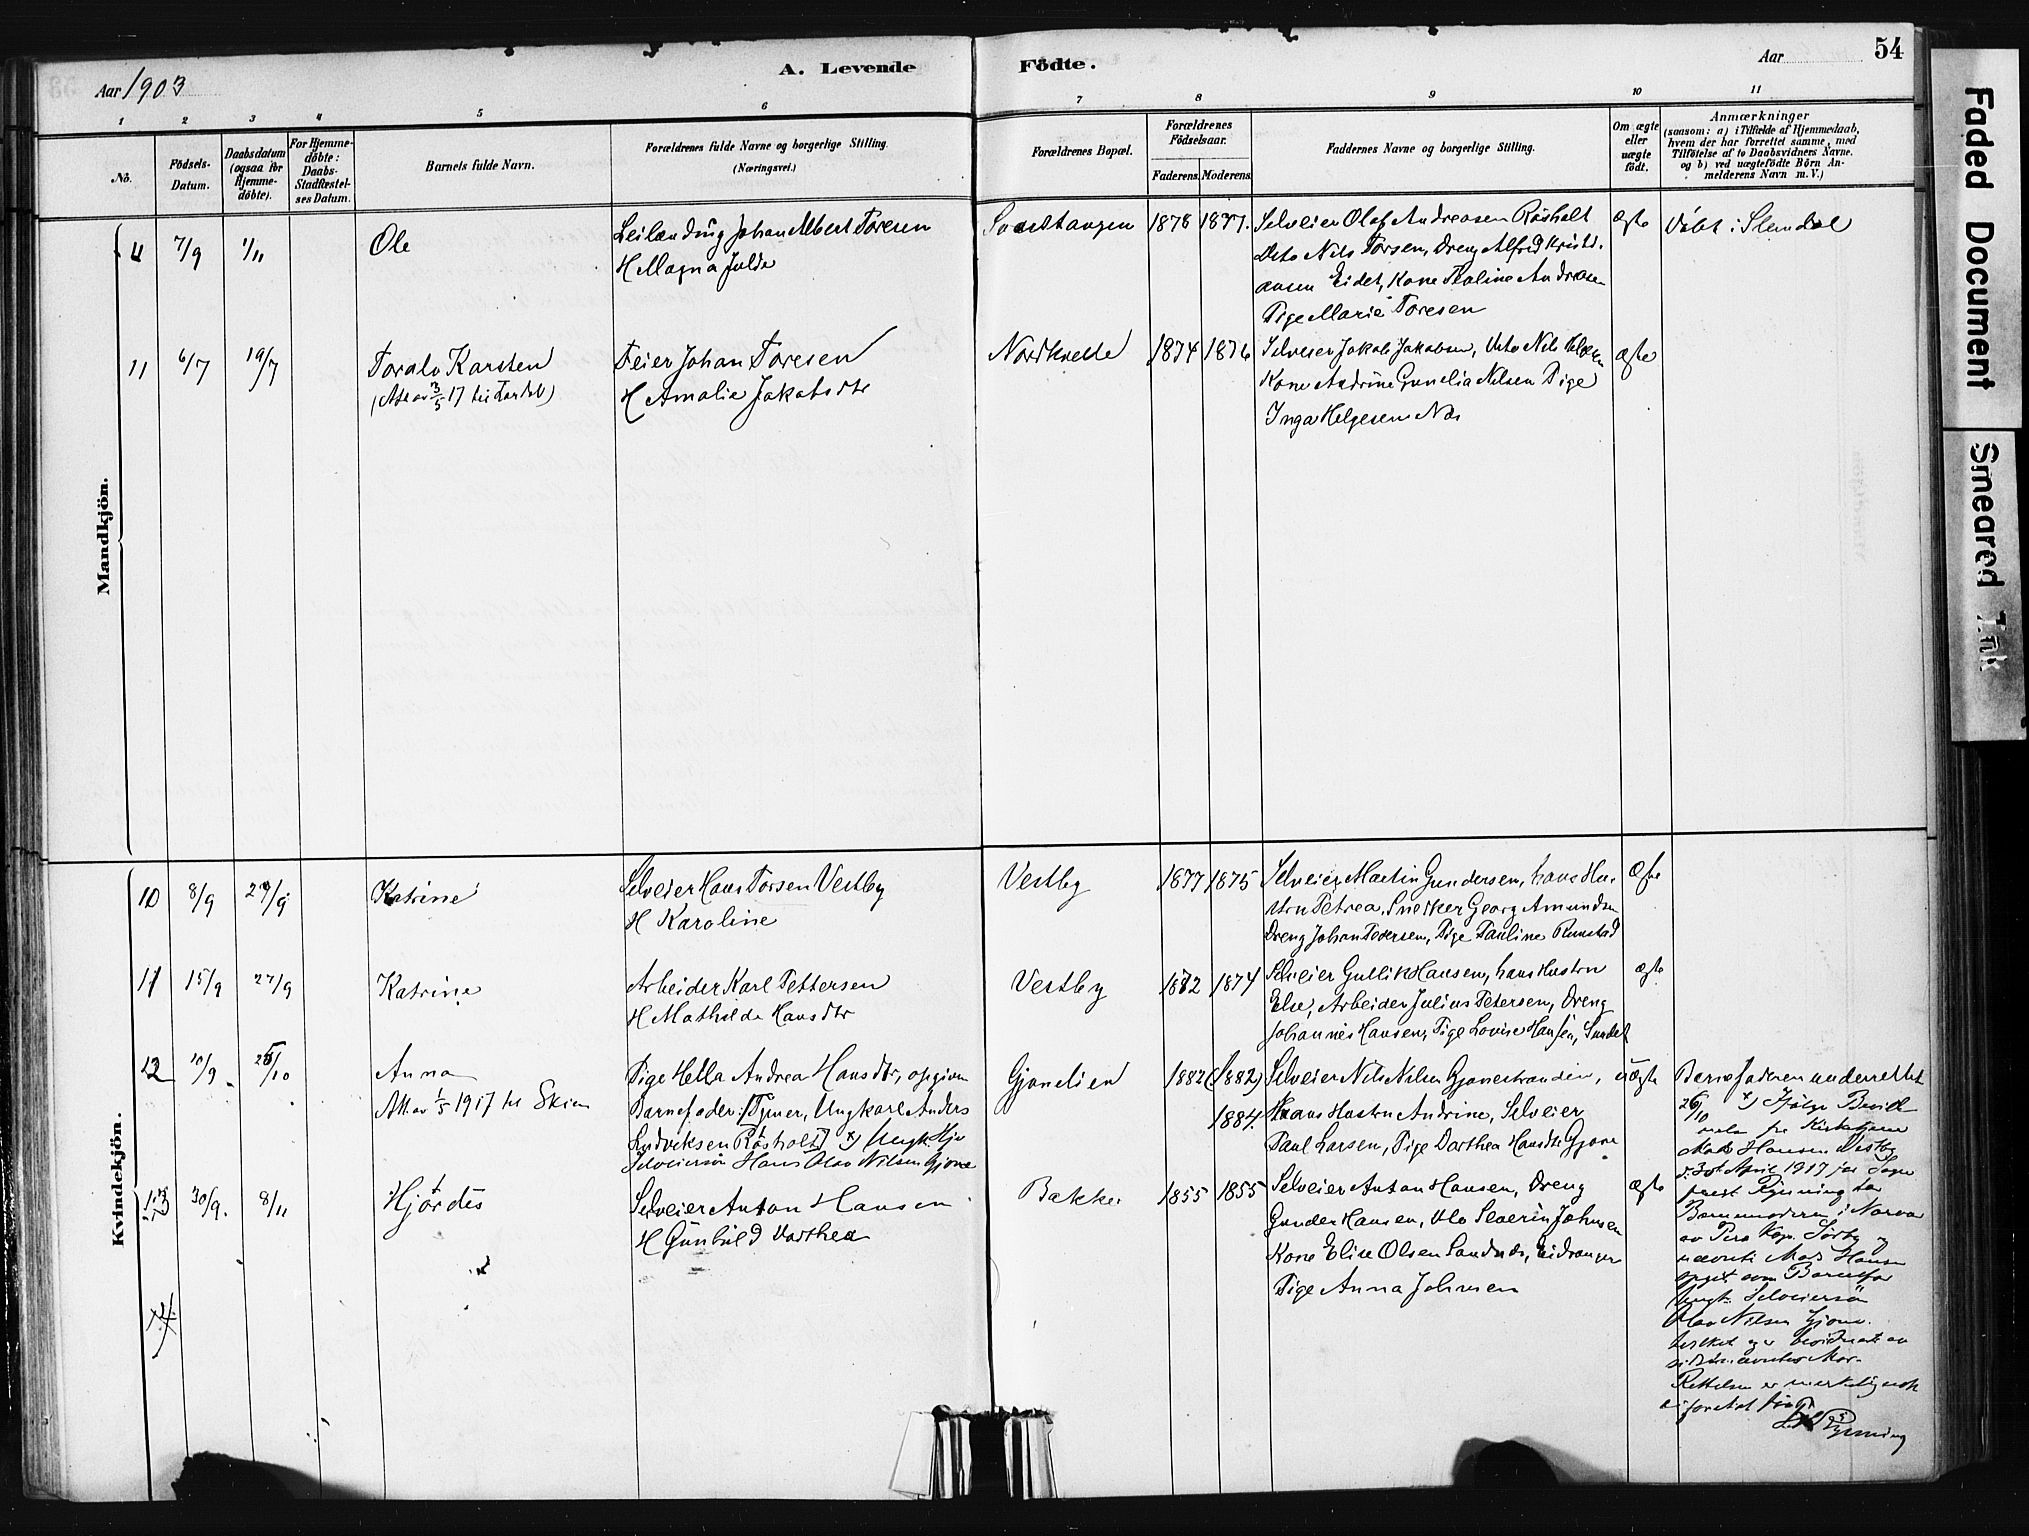 54
Aar 1903
A. Levende
Födte.
Aar
1 2 3 4 5 6 7 8 9 10 11
No.
Födsels-
Datum.
Daabsdatum
(ogsaa for
Hjemme-
döbte).
For Hjemme-
döbte:
Daabs-
Stadfæstel-
ses Datum.
Barnets fulde Navn.
Forældrenes fulde Navne og borgerlige Stilling.
(Næringsvei.)
Forældrenes Bopæl.
Forældrenes
Födselsaar.
Faderens. Moderens.
Faddernes Navne og borgerlige Stilling.
Om ægte
eller
uægte
födt.
Anmærkninger
(saasom: a) i Tilfælde af Hjemmedaab,
hvem der har forrettet samme, med
Tilföielse af to Daabsvidners Navne.
og b) ved uægtefödte Börn An-
melderens Navn m. V.)
Mandkjön.
7/9 1/11 Ole
Leilænding Johan Albert Toresen
H Magna Julde
1878 1877.
Selveier Olaf Andreasen Rösholt
Dito Nils Torsen, Dreng Alfred Kristi-
ansen Eidet, Kone Paline Andreasen
Pige Marie Toresen
ægte
Döbt i Slemdal
11 6/7 19/7 Toralv Karsten
Feier Johan Toresen
H Amalie Jakobsdtr
1874 1876
Selveier Jakob Jakobsen, Dito Nils
Kone Andrine Gunelia Nilsen Pige
Inga Helgesen Næs
ægte
Kvindekjön.
10 8/9 27/9 Katrine
Selveier Hans Torsen Vestby
H Karoline
Vestby
1877 1875
Selveier Martin Gundersen, hans Hu-
stru Petrea, Snekker Georg Amundsen
Dreng Johan Pedersen, Pige Pauline Runstad
Ægte
11 15/9 27/9 Katrine
Arbeider Karl Pettersen
H Mathilde Hansdtr
Vestby
1872 1874
Selveier Gullik Hansen, hans Hustru
Else, Arbeider Julius Petersen, Dreng
Johannes Hansen, Pige Lovise Hansen, Sundet
ægte
12 10/9 25/10 Anna
Att. av 1/5 1917 til Skien
Pige Hella Andrea Hansdtr, opgiven
Barnefader: [Tjener, Ungkarl Anders
Ludviksen Rösholt] x) Ungk.
Selveiersön Hans Olav Nilsen Gjone
Gjonelien
1882 (1882)
1884
Selveier Nils Nilsen Gjonestranden,
Hans Hustru Andrine, Selveier
Paul Larsen, Pige Dorthea Hansdtr Gjone
uægte
Barnefaderen underrettet
26/10 x) Ifölge Bevid-
nelse fra Kirketjener
Mads Hansen Vestby
d. 30t April 1917 for Sogne-
prest Gjerning har
Barnemoderen i Nærvær
av Pers. Kap. Sörby og
nævnte Mads Hansen
opgit som Barnefar
Ungk. Selveiersön
Olav Nilsen Gjone.
hvilket og er bevidnet av
sidstnævntes Mor.
Rettelsen er
13 30/9. 8/11 Hjördis
Selveier Anton Hansen
H Gunhild Dorthea
Bakke
1855 1855
Selveier Anton Hansen, Dreng
Gunder Hansen, Dito Severin Johnsen
Kone Elise Olsen Sandnæs, Eidanger
Pige Anna Johnsen
ægte
Faded Document
Smeared Ink